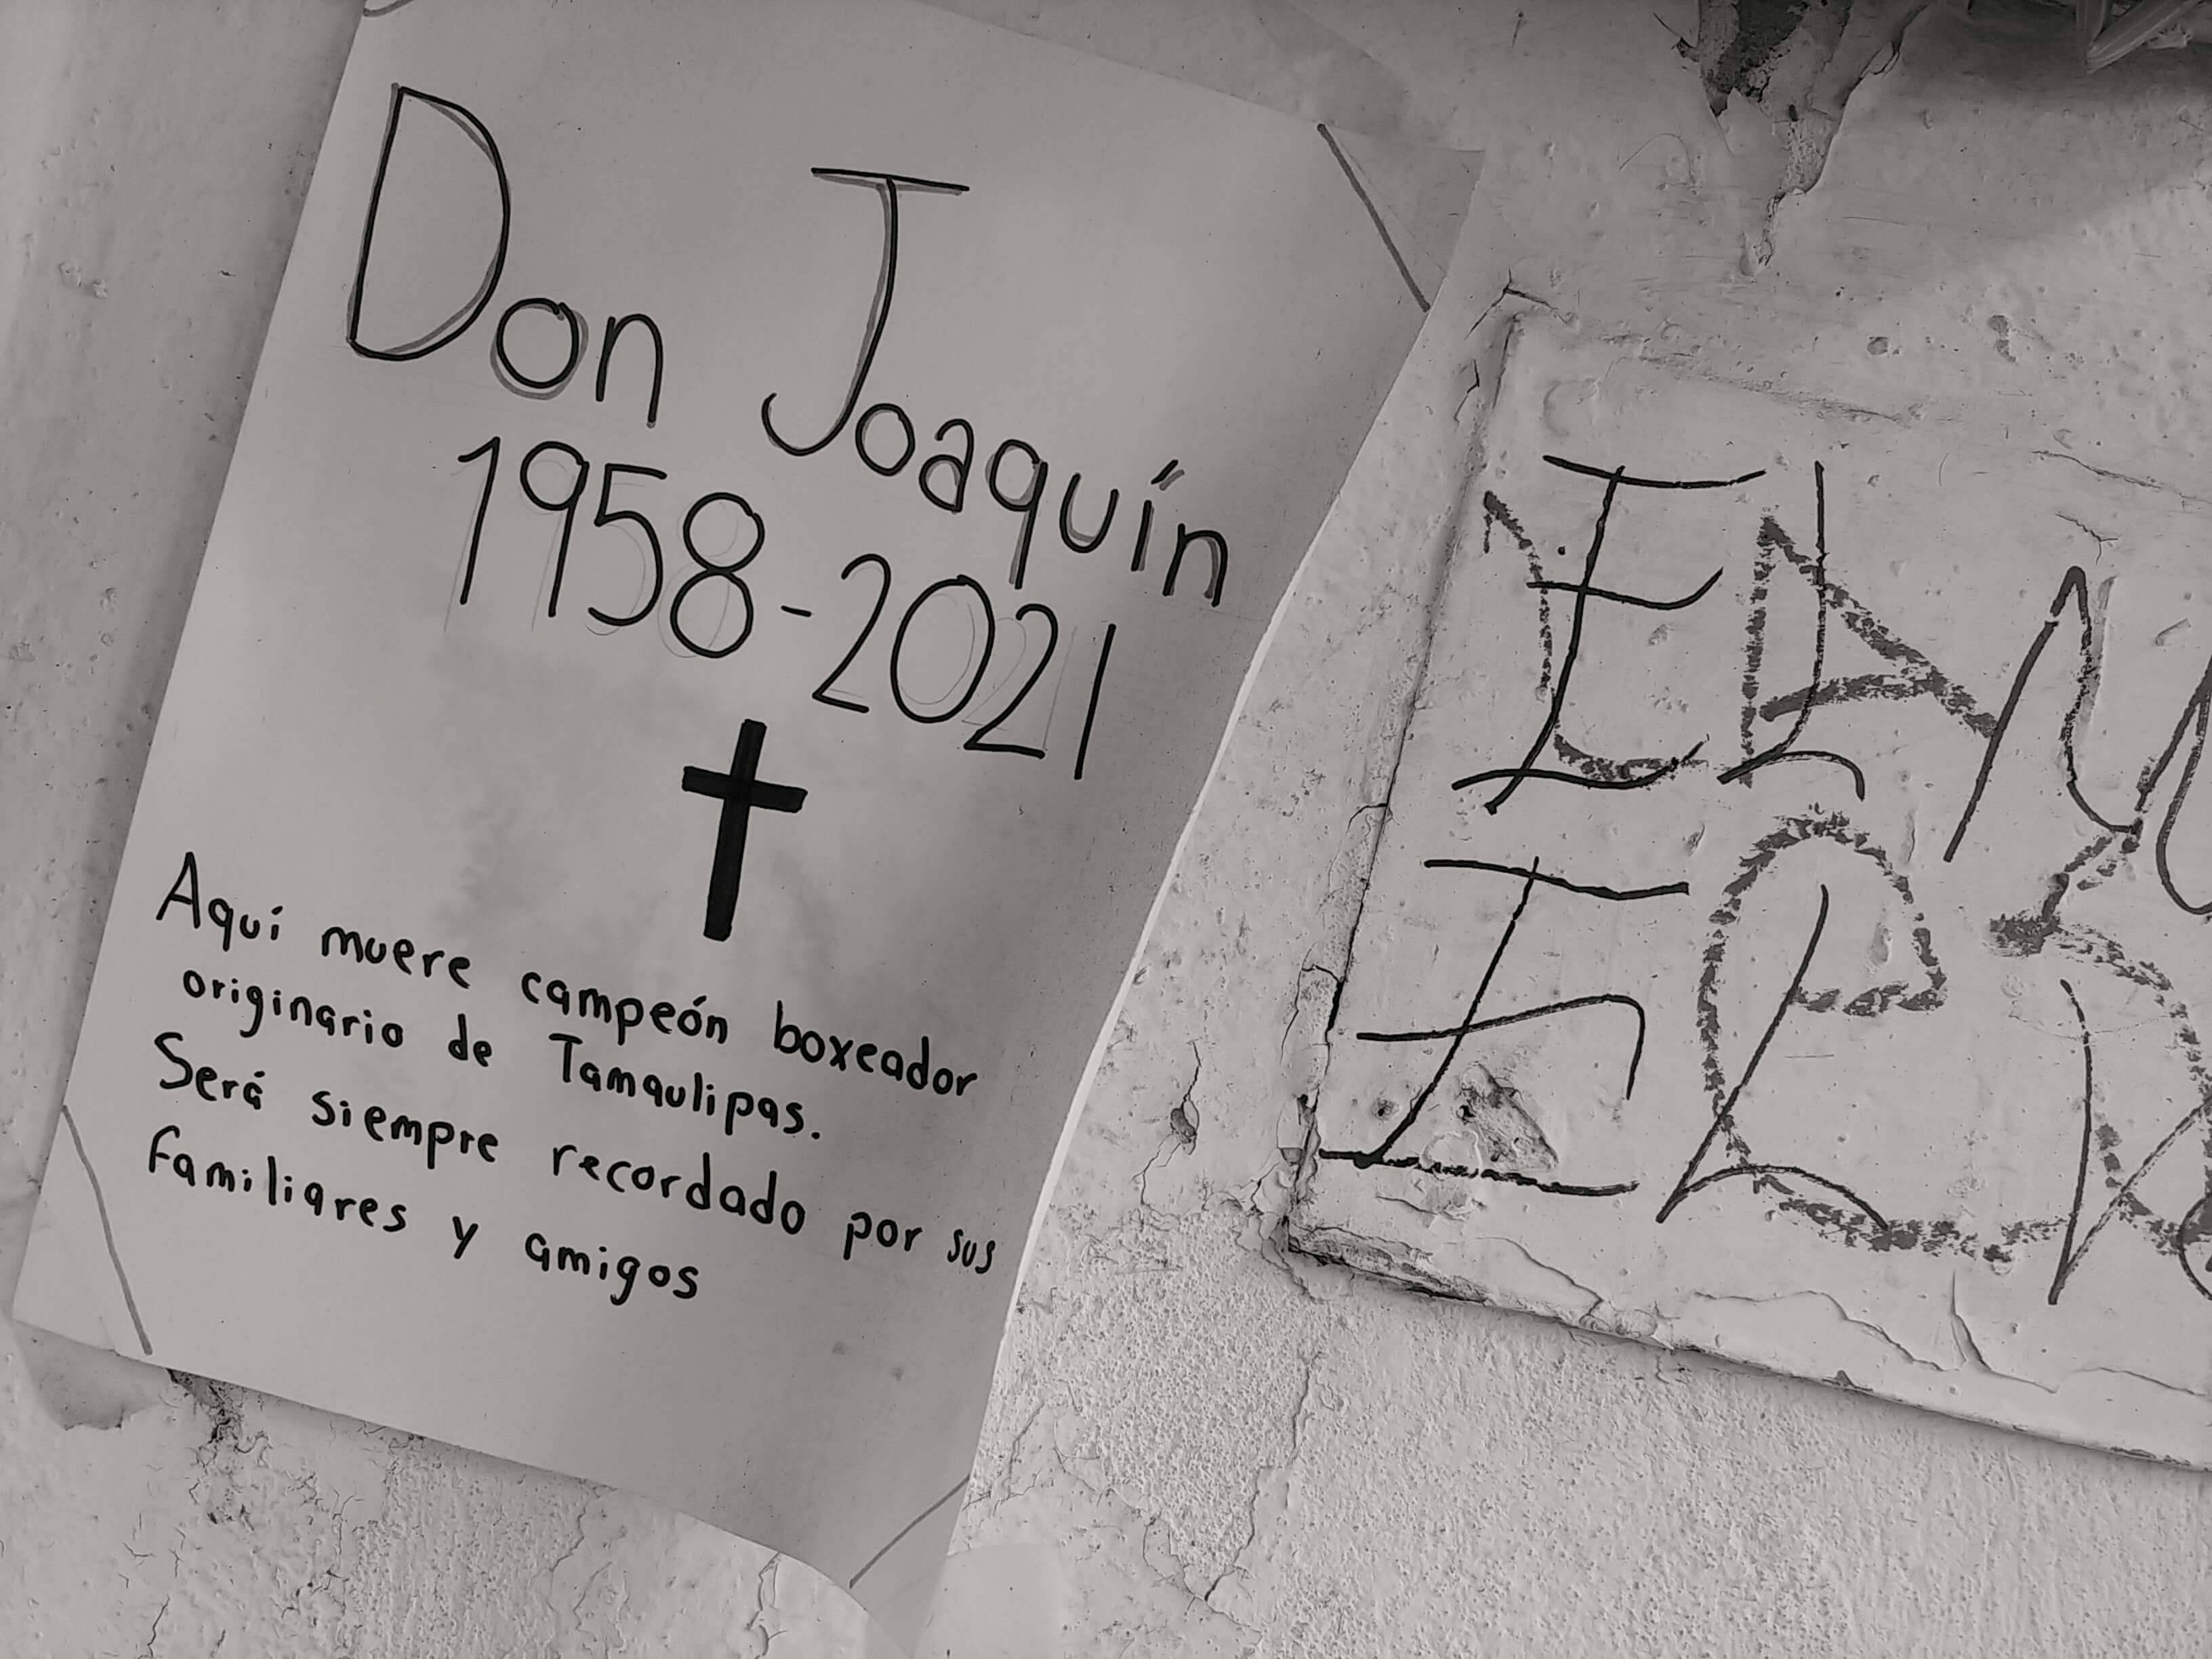 Don Joaquín
1958-2021
Aquí muere campeón boxeador
originario de Tamaulipas.
Será siempre recordado por sus
familiares y amigos